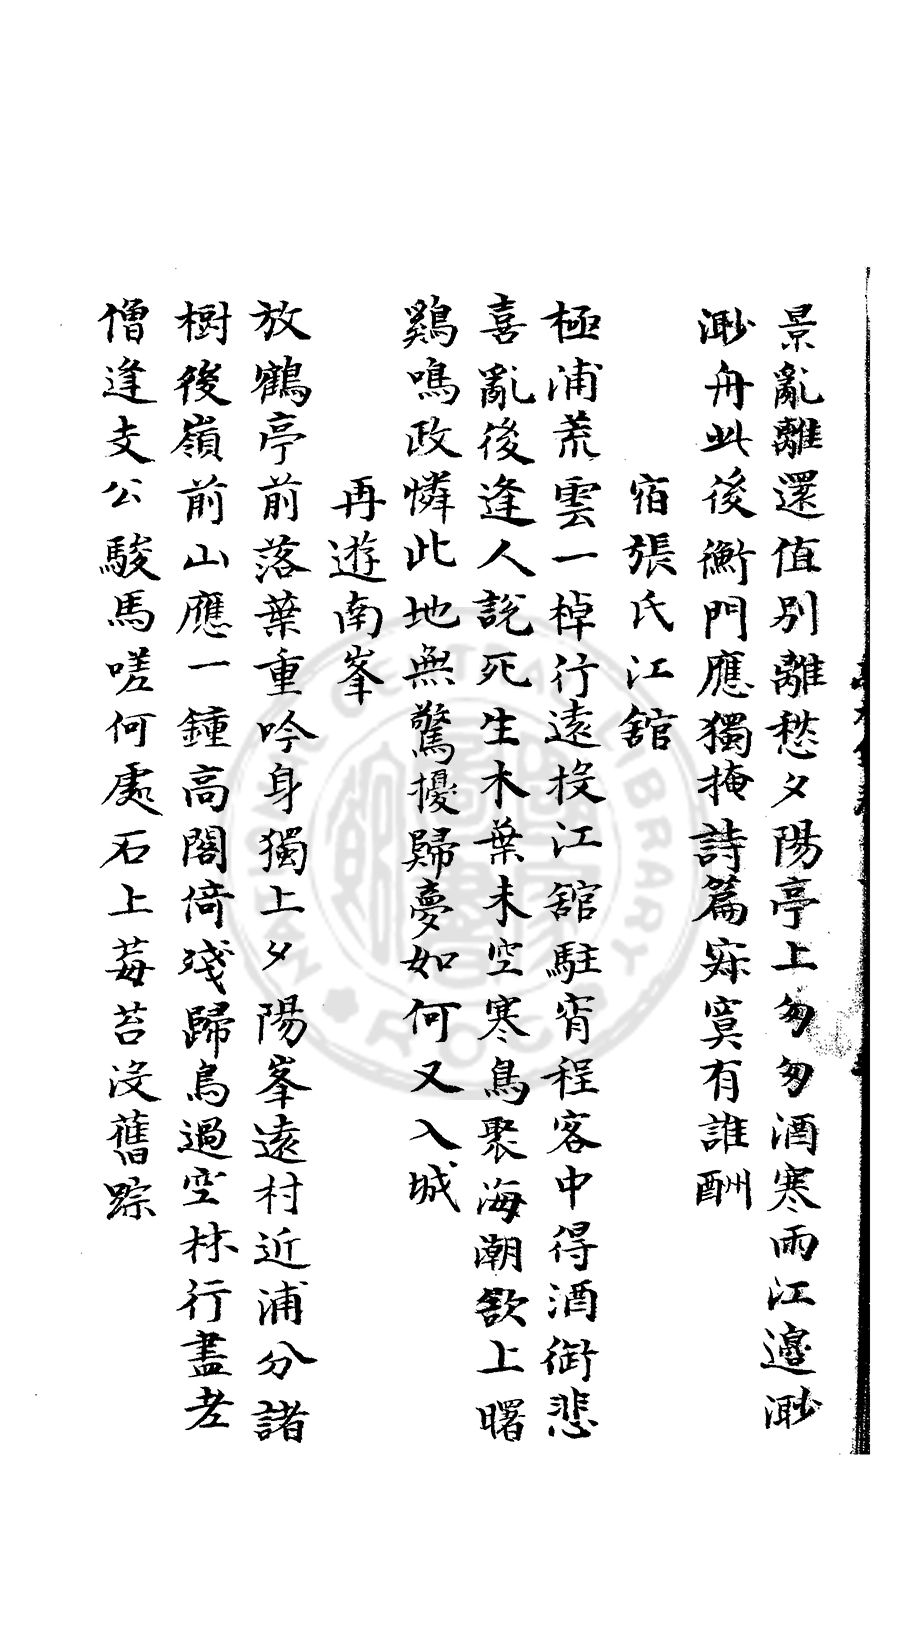 景亂離還值別離愁夕陽亭上匆匆酒寒雨江邊渺
渺舟此後衡門應獨掩詩篇寂寞有誰酬
宿張氏江舘
極浦荒雲一棹行遠投江舘駐宵程客中得酒銜悲
喜亂後逢人說死生木葉未空寒鳥聚海潮欲上曙
鷄鳴政憐此地無驚擾歸夢如何又入城
再遊南峯
放鶴亭前落葉重吟身獨上夕陽峯遠村近浦分諸
樹後嶺前山應一鍾高閣倚殘歸鳥過空林行盡老
僧逢支公駿馬嗟何處石上莓苔沒舊踪
NATIONAL CENTRAL LIBRARY